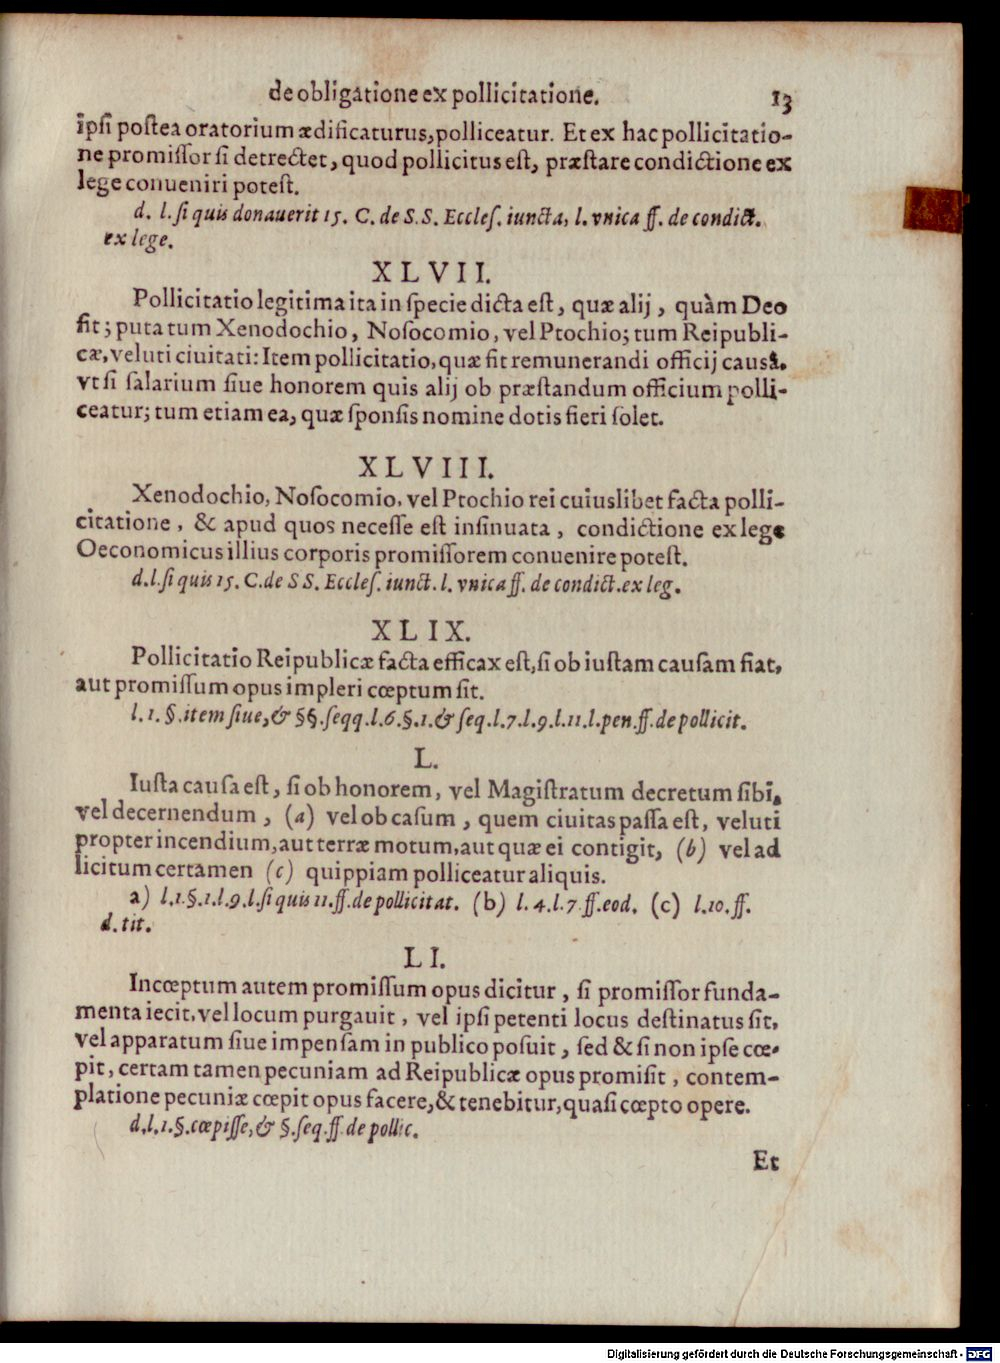 de obligatione ex pollicitatione. 13
ipſi poſtea oratorium ædificaturus, polliceatur. Et ex hac pollicitatio-
ne promiſſor ſi detrectet, quod pollicitus eſt, præſtare condictione ex
lege conueniri poteſt.
d. l. ſi quis donauerit 15. C. de S. S. Eccleſ. iuncta, l. vnica ff. de condict.
ex lege.
XLVII.
Pollicitatio legitima ita in ſpecie dicta eſt, quæ alij, quàm Deo
fit; puta tum Xenodochio, Noſocomio, vel Ptochio; tum Reipubli-
cæ, veluti ciuitati: Item pollicitatio, quæ fit remunerandi officij causâ.
vt ſi ſalarium ſiue honorem quis alij ob præſtandum officium polli-
ceatur; tum etiam ea, quæ ſponſis nomine dotis fieri ſolet.
XLVIII.
Xenodochio, Noſocomio, vel Ptochio rei cuiuslibet facta polli-
citatione, & apud quos neceſſe eſt inſinuata, condictione ex lege
Oeconomicus illius corporis promiſſorem conuenire poteſt.
d. l. ſi quis 15. C. de S S. Eccleſ. iunct. l. vnica ff. de condict. ex leg.
XLIX.
Pollicitatio Reipublicæ facta efficax eſt, ſi ob iuſtam cauſam fiat,
aut promiſſum opus impleri cœptum ſit.
l. 1. §. item ſiue, & §§. ſeqq. l. 6. §. 1. & ſeq. l. 7. l. 9. l. 11. l. pen. ff. de pollicit.
L.
Iuſta cauſa eſt, ſi ob honorem, vel Magiſtratum decretum ſibi,
vel decernendum, (a) vel ob caſum, quem ciuitas paſſa eſt, veluti
propter incendium, aut terræ motum, aut quæ ei contigit, (b) vel ad
licitum certamen (c) quippiam polliceatur aliquis.
a) l. 1. §. 1. l. 9. l. ſi quis 11. ff. de pollicitat. (b) l. 4. l. 7 ff. eod. (c) l. 10. ff.
d. tit.
LI.
Incœptum autem promiſſum opus dicitur, ſi promiſſor funda-
menta iecit, vel locum purgauit, vel ipſi petenti locus deſtinatus ſit,
vel apparatum ſiue impenſam in publico poſuit, ſed & ſi non ipſe cœ-
pit, certam tamen pecuniam ad Reipublicæ opus promiſit, contem-
platione pecuniæ cœpit opus facere, & tenebitur, quaſi cœpto opere.
d. l. 1. §. cœpiſſe, & §. ſeq. ff. de pollic.
Et
Digitalisierung gefördert durch die Deutsche Forschungsgemeinschaft - DFG